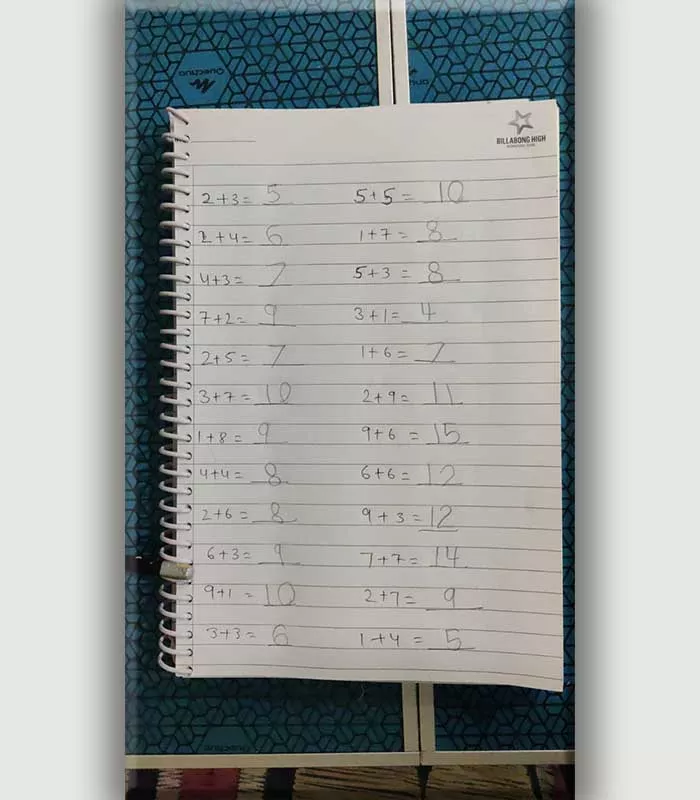 Quechua
BILLABONG HIGH
2+3= 5 5+5= 10
2+4= 6 1+7= 8
4+3= 7 5+3= 8
7+2= 9 3+1= 4
2+5= 7 1+6= 7
3+7= 10 2+9= 11
1+8= 9 9+6= 15
4+4= 8 6+6= 12
2+6= 8 9+3= 12
6+3= 9 7+7= 14
9+1= 10 2+7= 9
3+3= 6 1+4= 5